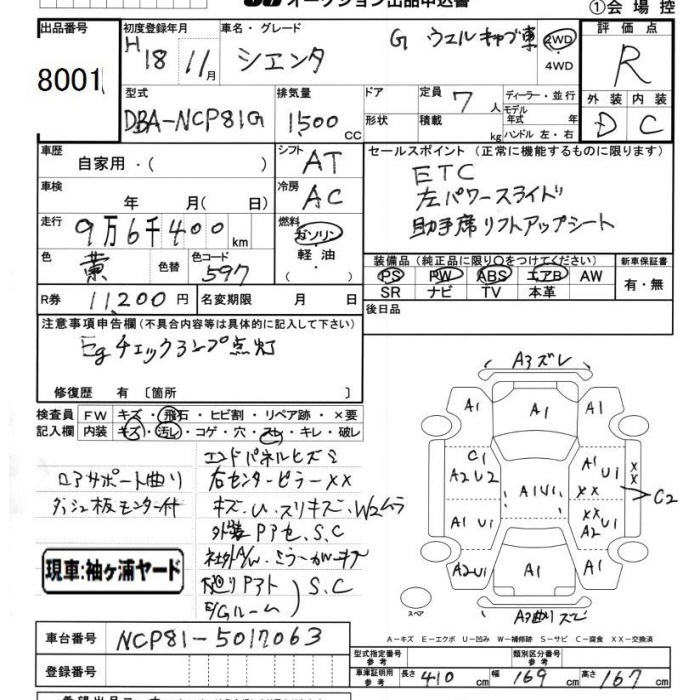 オークション出品申込書
①会場控
出品番号
8001
初度登録年月
H18 11月
車名・グレード
シエンタ G ウェルキャブ車
2WD
・
4WD
評価点
R
外装 内装
D C
型式
DBA-NCP81G
排気量
1500 CC
ドア
形状
定員 7 人
積載 kg
ディーラー・並行
モデル
年式 年
ハンドル 左・右
車歴
自家用・( )
シフト AT
セールスポイント (正常に機能するものに限ります)
ETC
左パワースライド
助手席リフトアップシート
車検
年 月( 日)
冷房 AC
走行
9万6千400 km
燃料
ガソリン
・
軽油
( )
色
薫
色替
色コード
597
装備品 (純正品に限り○をつけてください)
PS PW ABS エアB AW
SR ナビ TV 本革
新車保証書
有・無
R券 11,200円
名変期限 月 日
後日品
注意事項申告欄 (不具合内容等は具体的に記入して下さい)
Egチェックランプ点灯
修復歴 有 〔箇所 〕
検査員
記入欄
FW キズ・飛石・ヒビ割・リペア跡・×要
内装 キズ・汚レ・コゲ・穴・スレ・キレ・破レ
エンドパネルヒズミ
ロアサポート曲り
右センターピラーXX
ダッシュ板モニター付
キズ・U・スリキズ・W2ムラ
外装Pアセ、S、C
廻りPアト
E/Gルーム
S、C
現車:袖ヶ浦ヤード
A3ズレ
A1 A1 A1
C1
A2U2 A1U1 A1 U1
XX
XX
C2
A1 U1
XX
A2 U1
A2U1 A1 A1
A3曲りズレ
スペア
A−キズ E−エクボ U−凹み W−補修跡 S−サビ C−腐食 XX−交換済
車台番号 NCP81-5017063
登録番号
型式指定番号
参考
類別区分番号
参考
車庫証明用
参考
長さ 410 cm 幅 169 cm 高さ 167 cm